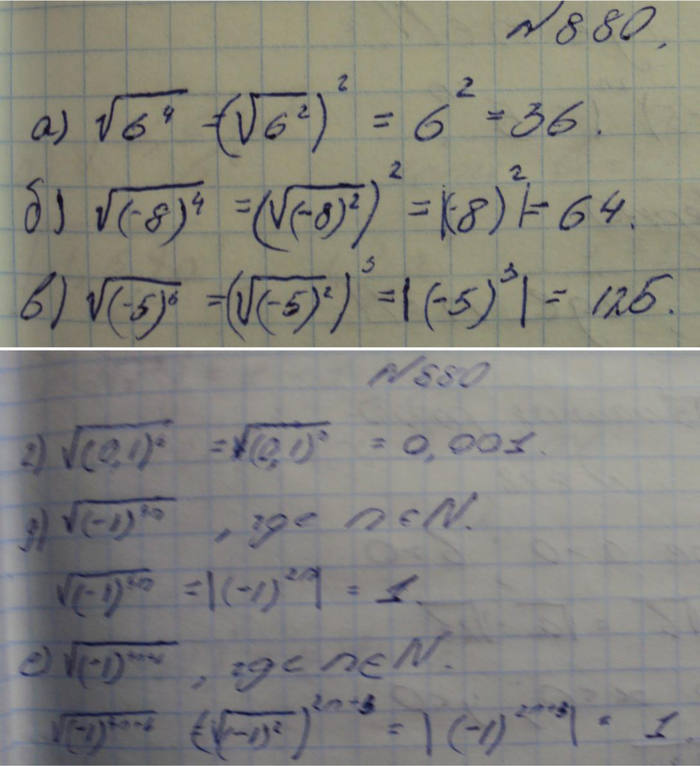 N 880.
а) √(6⁴) = (√(6²))² = 6² = 36.
б) √((-8)⁴) = (√((-8)²))² = |(-8)²| = 64.
в) √((-5)⁶) = (√((-5)²))³ = |(-5)³| = 125.
N 880
г) √((0,1)⁶) = (0,1)³ = 0,001.
д) √((-1) , где n ∈ N.
= |(-1)²ⁿ| = 1.
е) √((-1) , где n ∈ N.
(√((-1)²))²ⁿ⁺³ = |(-1)²ⁿ⁺³| = 1.